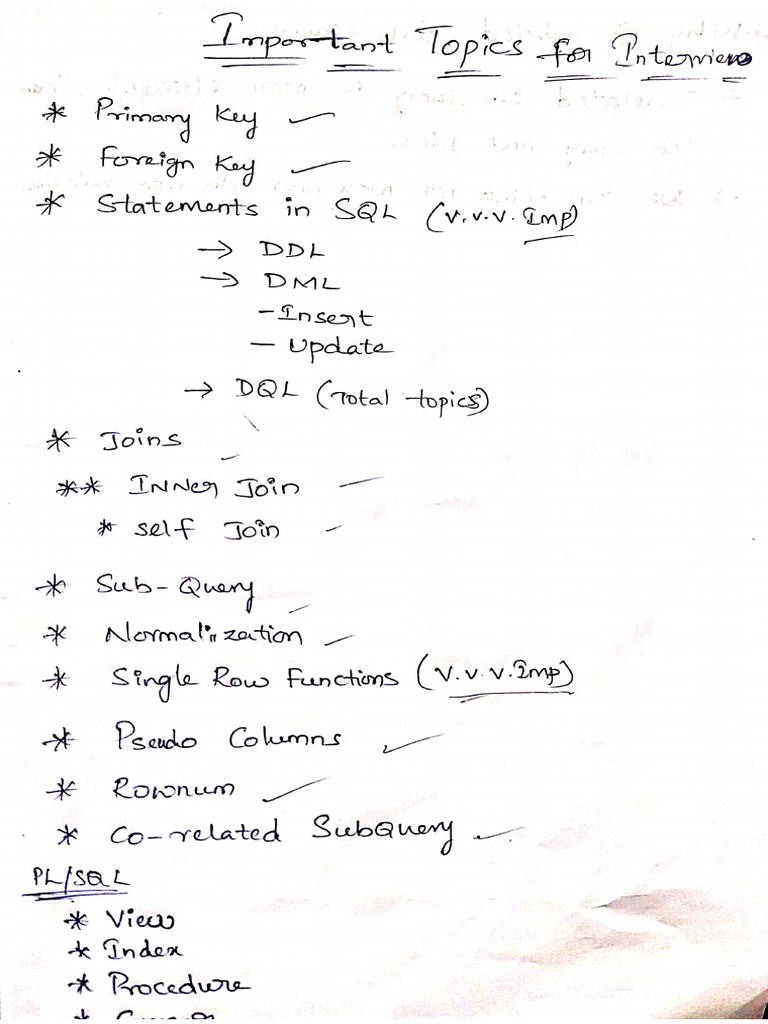 Important Topics for Interview
* Primary Key
* Foreign Key
* Statements in SQL (V.V.V. Imp)
→ DDL
→ DML
- Insert
- Update
→ DQL (Total topics)
* Joins
** INNER Join
* Self Join
* Sub-Query
* Normalization
* Single Row Functions (V.V.V. Imp)
* Pseudo Columns
* Rownum
* Co-related SubQuery
PL/SQL
* View
* Index
* Procedure